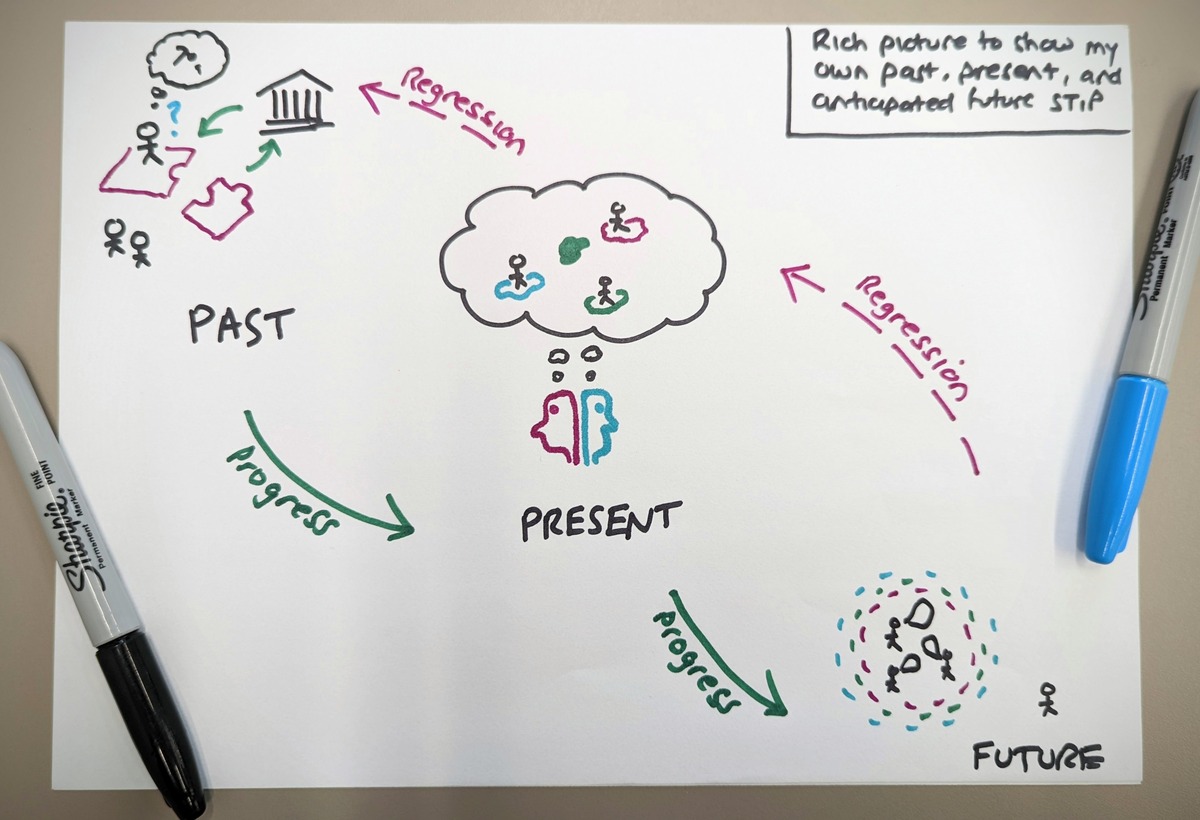 Rich picture to show my
own past, present, and
anticipated future STiP
Regression
PAST
Regression
progress
PRESENT
progress
FUTURE
Sharpie.
FINE
POINT
Permanent Marker
Sharpie.
POINT
Permanent Marker